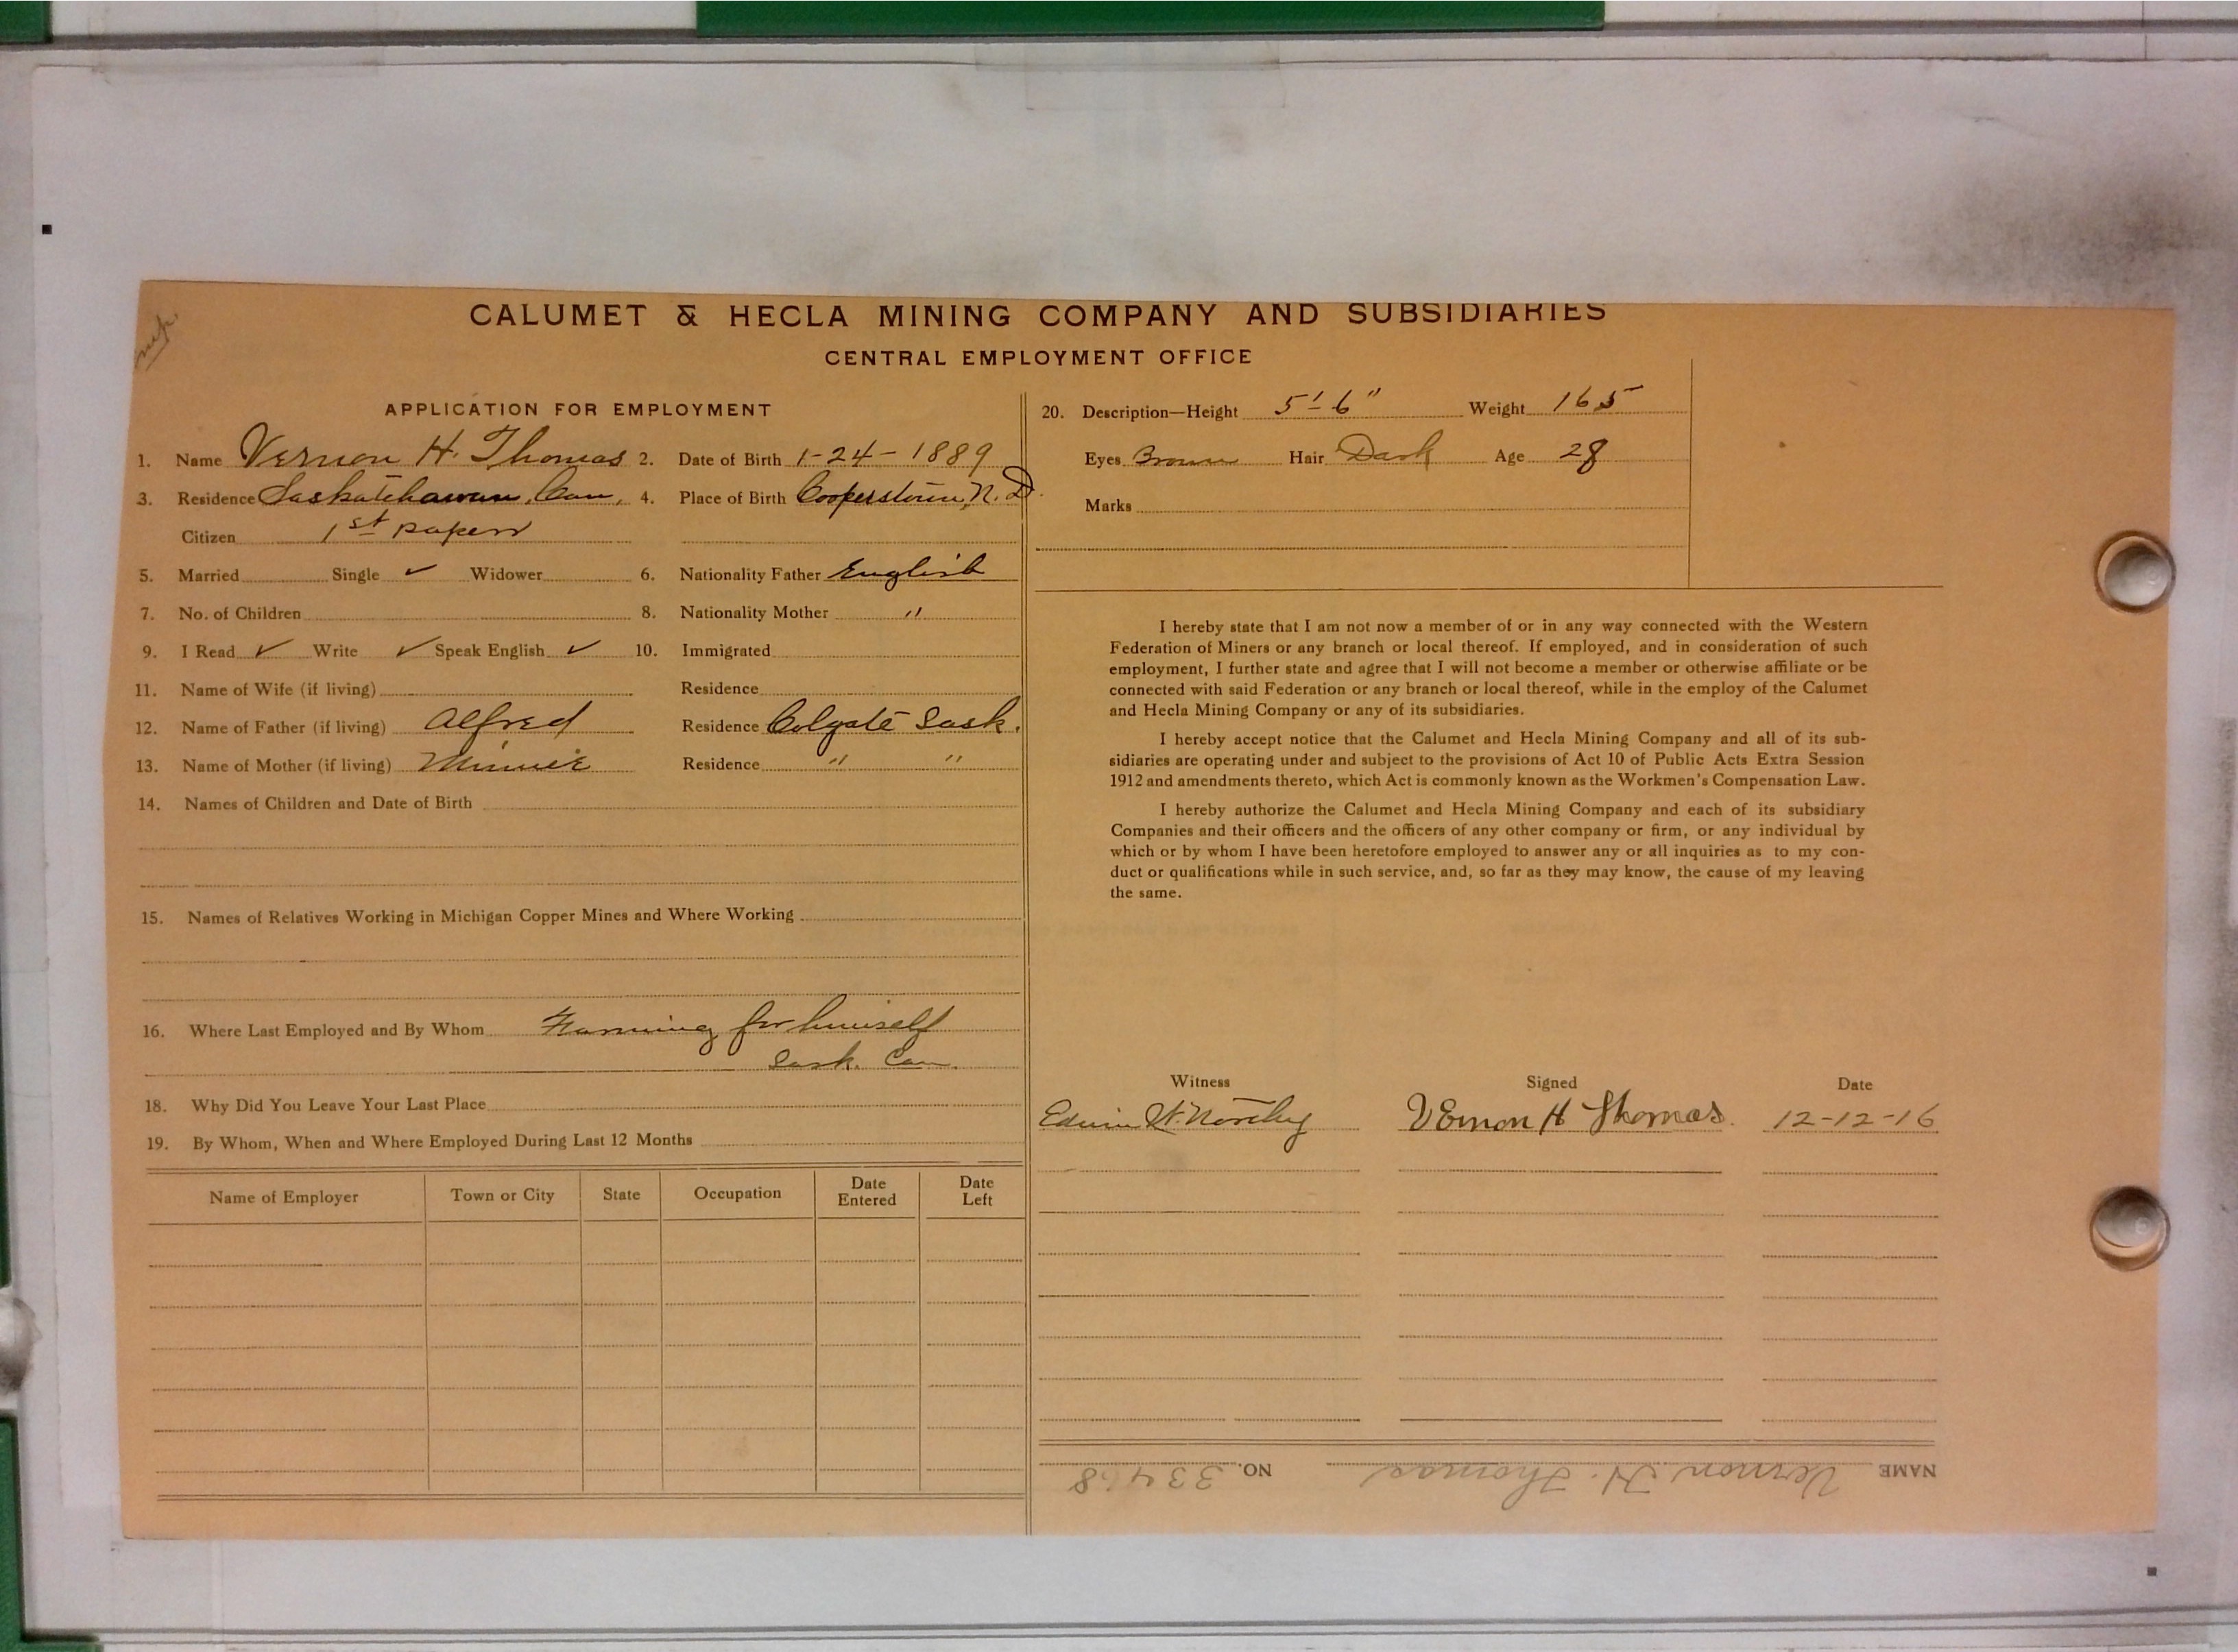 CALUMET & HECLA MINING COMPANY AND SUBSIDIARIES
CENTRAL EMPLOYMENT OFFICE
APPLICATION FOR EMPLOYMENT
1. Name Vernon H. Thomas 2. Date of Birth 1-24-1889
3. Residence Saskatchawan, Can, 4. Place of Birth Cooperstown, N.D.
Citizen 1st papers
5. Married Single ✓ Widower 6. Nationality Father English
7. No. of Children 8. Nationality Mother "
9. I Read ✓ Write ✓ Speak English ✓ 10. Immigrated
11. Name of Wife (if living) Residence
12. Name of Father (if living) Alfred Residence Colgate Sask.
13. Name of Mother (if living) Minnie Residence " "
14. Names of Children and Date of Birth
15. Names of Relatives Working in Michigan Copper Mines and Where Working
16. Where Last Employed and By Whom Farming for himself
Sask. Can.
18. Why Did You Leave Your Last Place
19. By Whom, When and Where Employed During Last 12 Months
Name of Employer Town or City State Occupation Date Entered Date Left
20. Description—Height 5'-6" Weight 165
Eyes Brown Hair Dark Age 28
Marks
I hereby state that I am not now a member of or in any way connected with the Western
Federation of Miners or any branch or local thereof. If employed, and in consideration of such
employment, I further state and agree that I will not become a member or otherwise affiliate or be
connected with said Federation or any branch or local thereof, while in the employ of the Calumet
and Hecla Mining Company or any of its subsidiaries.
I hereby accept notice that the Calumet and Hecla Mining Company and all of its sub-
sidiaries are operating under and subject to the provisions of Act 10 of Public Acts Extra Session
1912 and amendments thereto, which Act is commonly known as the Workmen's Compensation Law.
I hereby authorize the Calumet and Hecla Mining Company and each of its subsidiary
Companies and their officers and the officers of any other company or firm, or any individual by
which or by whom I have been heretofore employed to answer any or all inquiries as to my con-
duct or qualifications while in such service, and, so far as they may know, the cause of my leaving
the same.
Witness Signed Date
Edwin Vernon H Thomas. 12-12-16
NAME Vernon H. Thomas NO. 33468